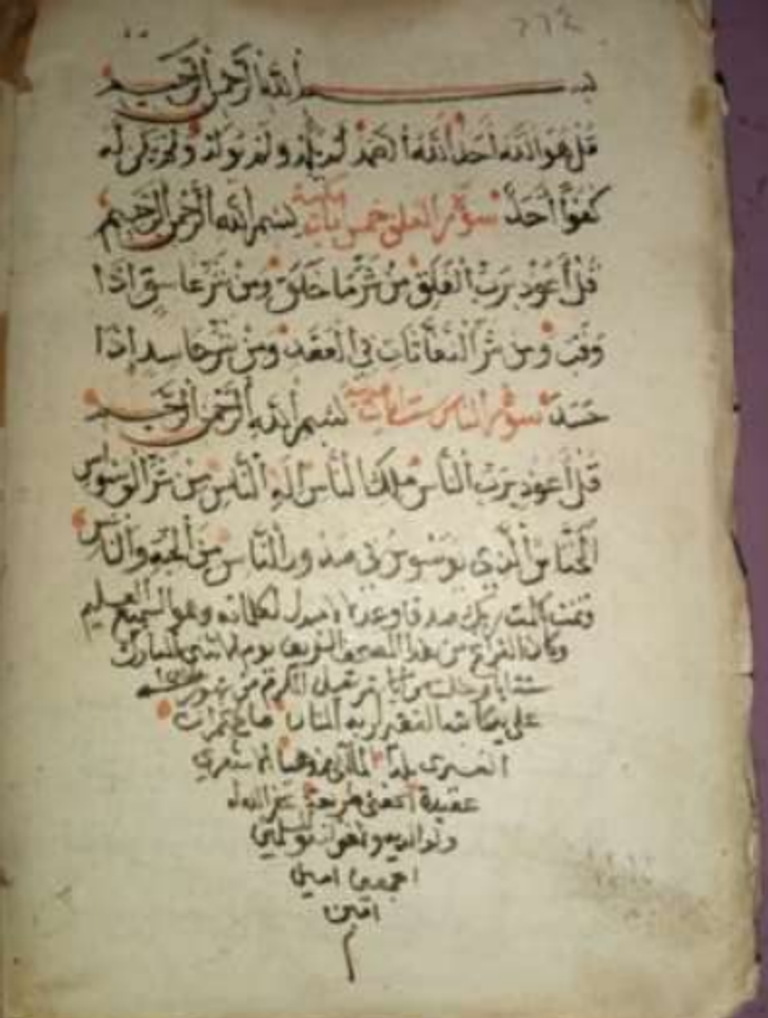 ٢٢٤
بسم الله الرحمن الرحيم
قل هو الله أحد الله الصمد لم يلد ولم يولد ولم يكن له
كفوا أحد سورة الفلق خمس آيات مكية بسم الله الرحمن الرحيم
قل أعوذ برب الفلق من شر ما خلق ومن شر غاسق إذا
وقب ومن شر النفاثات في العقد ومن شر حاسد إذا
حسد سورة الناس ست بسم الله الرحمن الرحيم
قل أعوذ برب الناس ملك الناس إله الناس من شر الوسواس
الخناس الذي يوسوس في صدور الناس من الجنة والناس
وتمت كلمت ربك صدقا وعدلا لا مبدل لكلماته وهو السميع العليم
وكان الفراغ من هذا المصحف الشريف يوم المبارك
من شهور سنة
على يد كاتبه الفقير
بلدا المالكي مذهبا
عقيدة طريقة غفر الله له
ولوالديه
أجمعين امين
امين
م